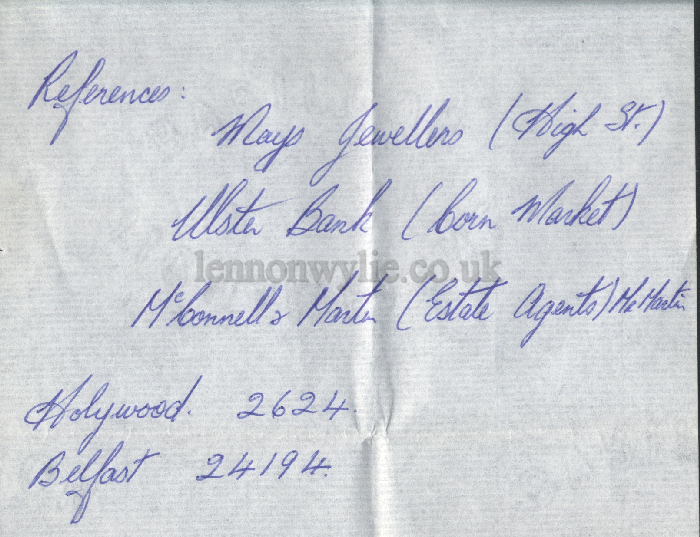 References:
Mays Jewellers (High St.)
Ulster Bank (Corn Market)
lennonwylie.co.uk
McConnell & Martin (Estate Agents) Mr Martin
Holywood. 2624.
Belfast 24194.